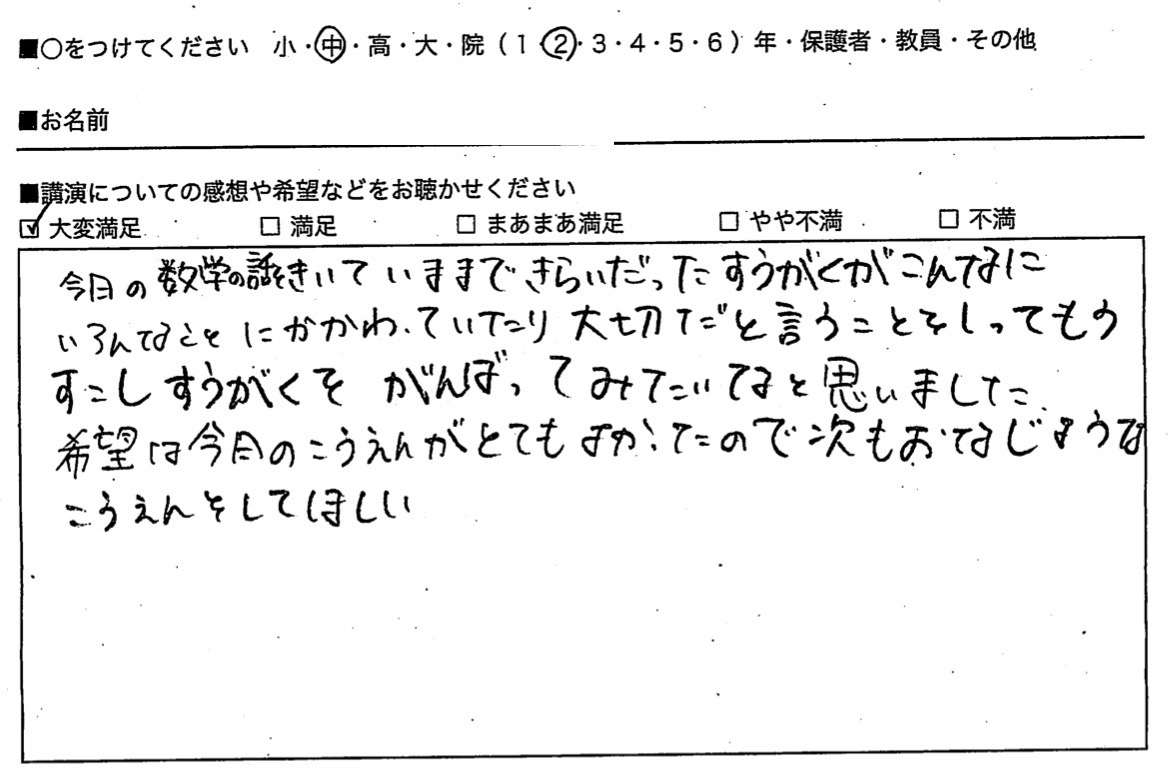 ■○をつけてください 小・中・高・大・院(1・2・3・4・5・6)年・保護者・教員・その他
■お名前
■講演についての感想や希望などをお聴かせください
☑ 大変満足 □ 満足 □ まあまあ満足 □ やや不満 □ 不満
今日の数学の話をきいていままできらいだったすうがくがこんなに
いろんなことにかかわっていたり大切だと言うことをしってもう
すこしすうがくをがんばってみたいなと思いました。
希望は今日のこうえんがとてもよかったので次もおなじような
こうえんをしてほしい